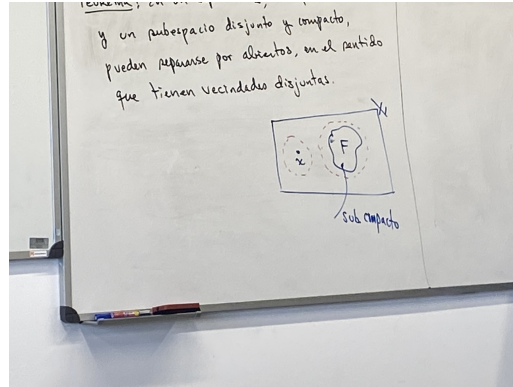 Teorema: En un
y un subespacio disjunto y compacto,
pueden separarse por abiertos, en el sentido
que tienen vecindades disjuntas.
X
x
F
sub compacto